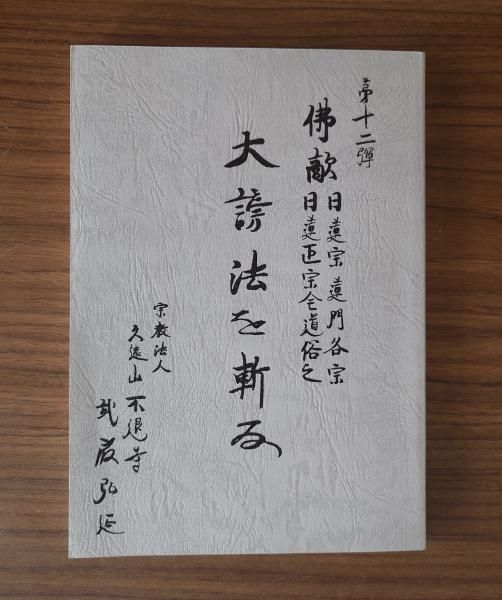 第十二彈
佛敵日蓮宗蓮門各宗
日蓮正宗全道俗之
大謗法を斬る
宗教法人
久遠山不退寺
弘延